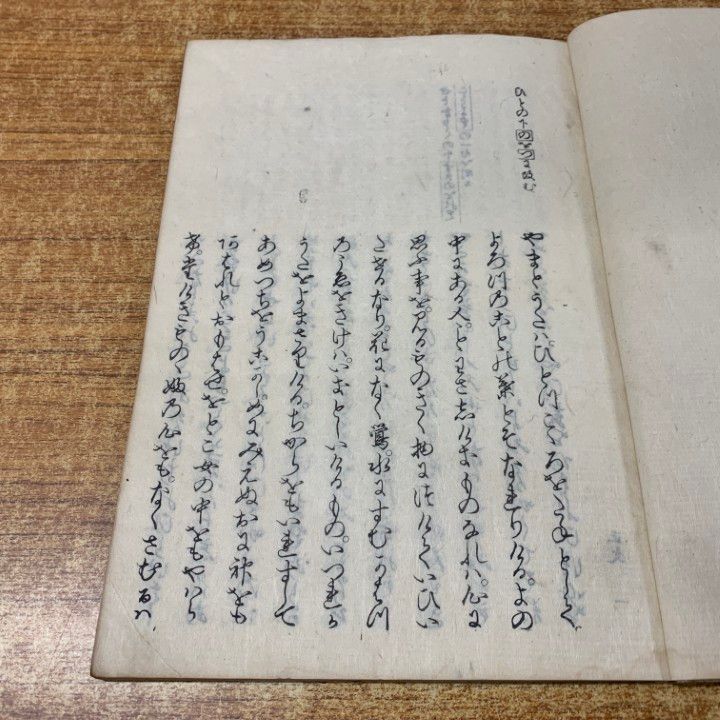 ひとの下の
やまとうたハ。ひとつこゝろをたねとして。
よろつのことの葉とそなれりける。よの
中にある人。ことわさしけきものなれハ。心に
思ふ事を。見るものきく物につけていひい
たせるなり。花になく鶯。水にすむかはつ
のこゑをきけハ。いきとしいけるもの。いつれか
うたをよまさりける。ちからをもいれすして
あめつちをうこかし。めにみえぬおに神をも
あはれとおもはせ。をとこ女の中をもやハら
け。たけきものゝふの心をも。なくさむるハ